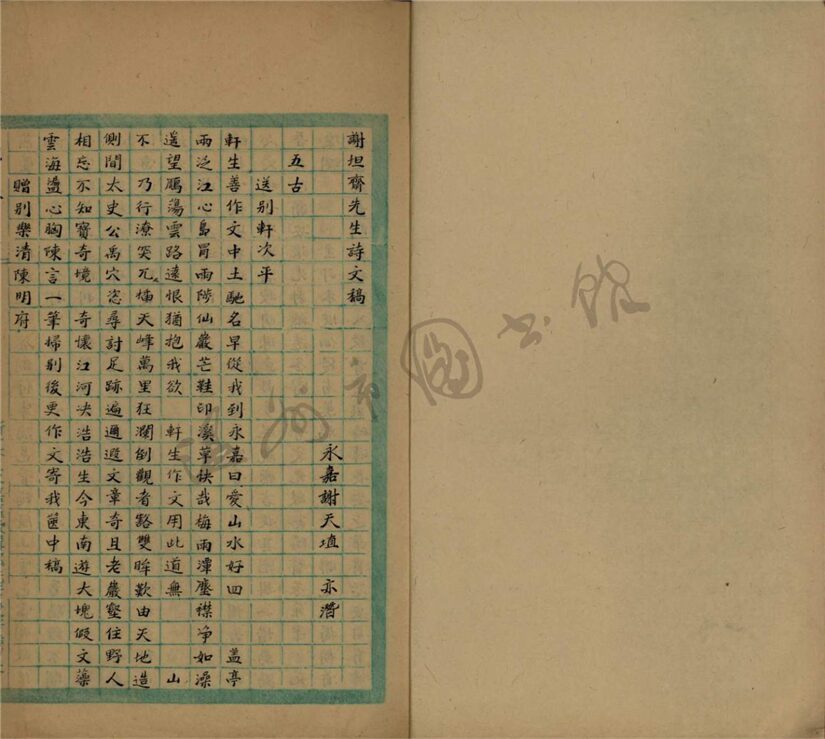 謝坦齋先生詩文稿
永嘉謝天埴 亦潛
五古
送別軒次平
軒生善作文中土馳名早從我到永嘉曰愛山水好四 蓋亭
雨泛江心島冐雨陟仙巖芒鞋印溪草快哉梅雨潭塵襟净如澡
遥望鴈蕩雲路遠恨猶抱我欲 軒生作文用此道無 山
不 乃行潦笑兀 天峰萬里狂瀾倒觀者豁雙眸歎由天地造
側聞太史公禹穴恣尋討足跡遍遐文章奇且老巖壑住野人
相忘不知寶奇境 奇懷江河决浩浩生今東南遊大塊假文藻
雲海盪心胸陳言一筆掃别後更作文寄我篋中稿
贈别樂清陳明府
圖書館